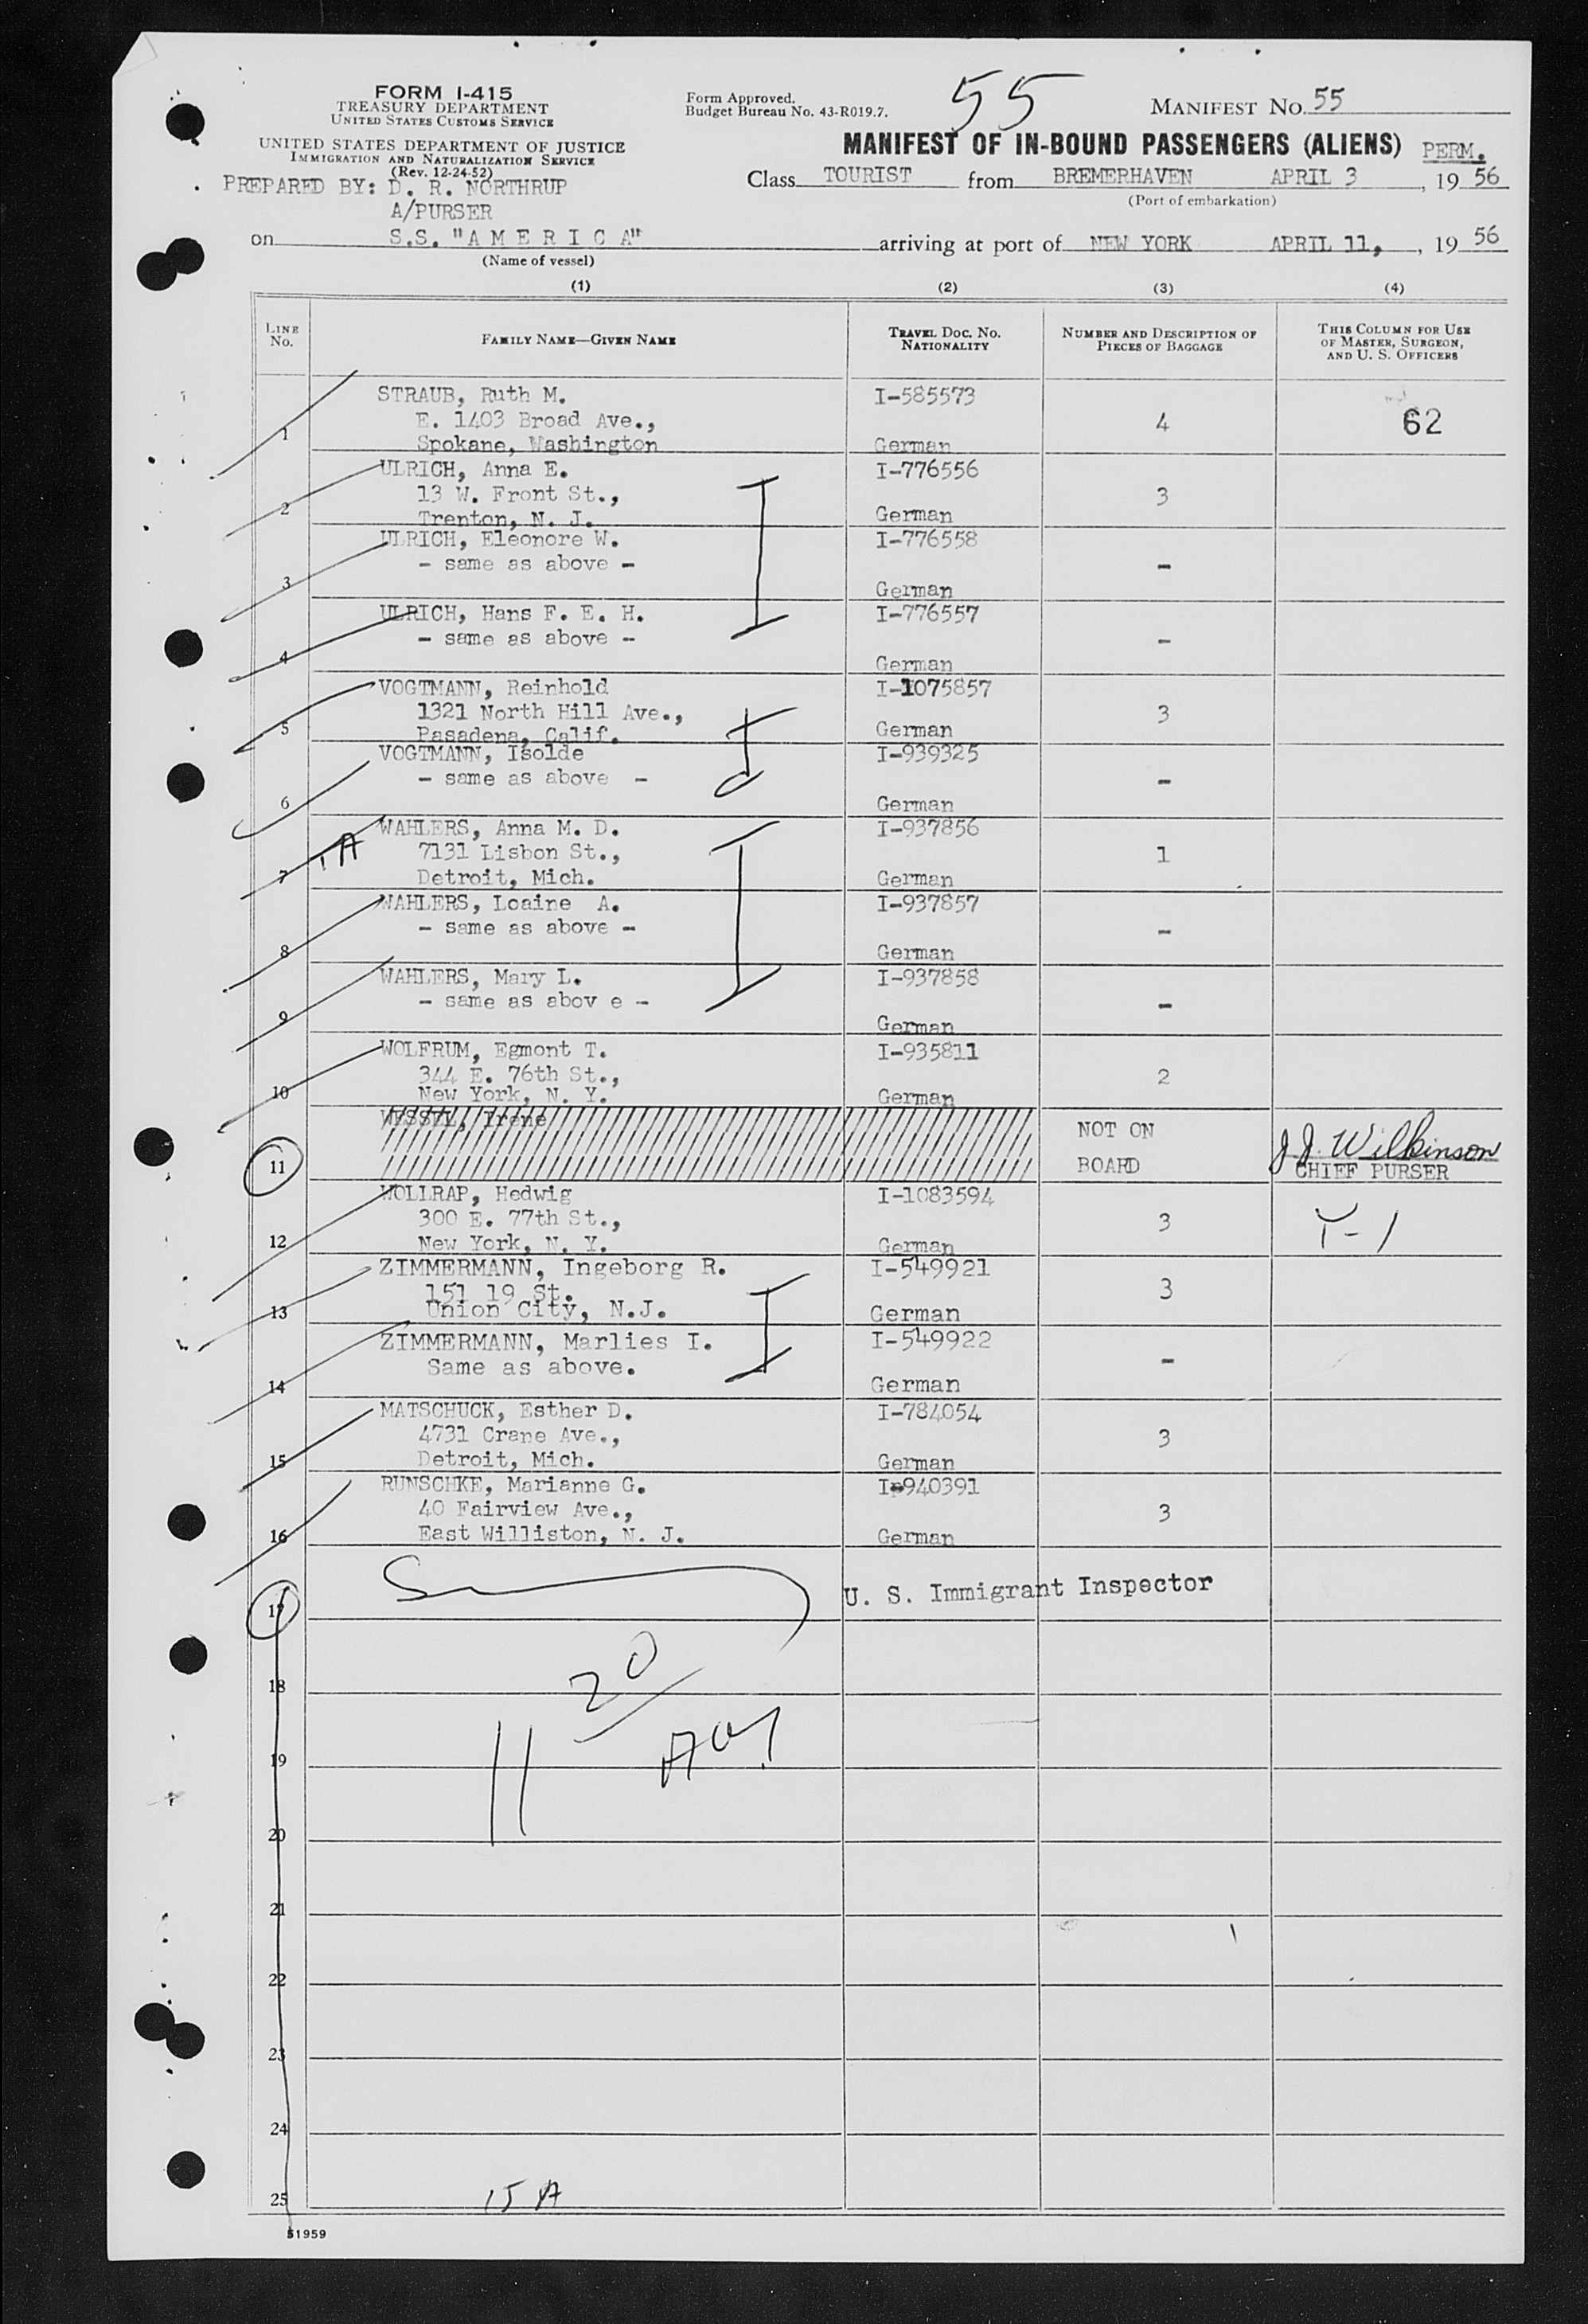 FORM I-415
TREASURY DEPARTMENT
UNITED STATES CUSTOMS SERVICE
UNITED STATES DEPARTMENT OF JUSTICE
IMMIGRATION AND NATURALIZATION SERVICE
(Rev. 12-24-52)
PREPARED BY: D. R. NORTHRUP
A/PURSER
Form Approved.
Budget Bureau No. 43-R019.7.
55
MANIFEST No. 55
MANIFEST OF IN-BOUND PASSENGERS (ALIENS) PERM.
Class TOURIST from BREMERHAVEN APRIL 3, 19 56
(Port of embarkation)
on S.S. "A M E R I C A" arriving at port of NEW YORK APRIL 11,, 19 56
(Name of vessel)
(1) (2) (3) (4)
LINE No. FAMILY NAME—GIVEN NAME TRAVEL DOC. NO. NATIONALITY NUMBER AND DESCRIPTION OF PIECES OF BAGGAGE THIS COLUMN FOR USE OF MASTER, SURGEON, AND U. S. OFFICERS
STRAUB, Ruth M. I-585573
1 E. 1403 Broad Ave., 4 62
Spokane, Washington German
ULRICH, Anna E. I-776556
2 13 W. Front St., 3
Trenton, N. J. German
ULRICH, Eleonore W. I-776558
3 - same as above - -
German
ULRICH, Hans F. E. H. I-776557
- same as above - -
4 German
VOGTMANN, Reinhold I-1075857
5 1321 North Hill Ave., 3
Pasadena, Calif. German
VOGTMANN, Isolde I-939325
- same as above - -
6 German
WAHLERS, Anna M. D. I-937856
A 7131 Lisbon St., 1
7 Detroit, Mich. German
WAHLERS, Loaine A. I-937857
- same as above - -
8 German
WAHLERS, Mary L. I-937858
- same as abov e - -
9 German
WOLFRUM, Egmont T. I-935811
344 E. 76th St., 2
10 New York, N. Y. German
WESSEL, Irene NOT ON J.J. Wilkinson
11 BOARD CHIEF PURSER
WOLLRAP, Hedwig I-1083594
300 E. 77th St., 3 T-1
12 New York, N. Y. German
ZIMMERMANN, Ingeborg R. I-549921
151 19 St. 3
13 Union City, N.J. German
ZIMMERMANN, Marlies I. I-549922
Same as above. -
14 German
MATSCHUCK, Esther D. I-784054
4731 Crane Ave., 3
15 Detroit, Mich. German
RUNSCHKE, Marianne G. I-940391
40 Fairview Ave., 3
16 East Williston, N. J. German
17 U. S. Immigrant Inspector
18 20
19 11
20
21
22
23
24
25 15 A
51959